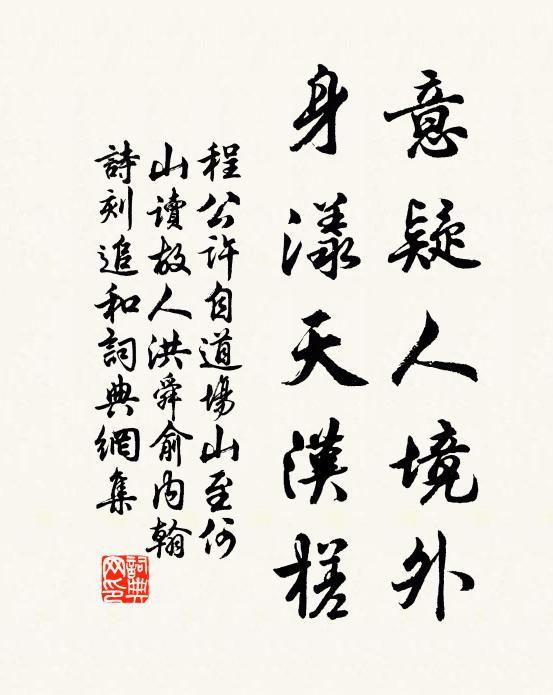 意疑人境外
身漾天漢槎
程公許自道場山至何
山讀故人洪舜俞内翰
詩刻追和詞典網集
詞典網印